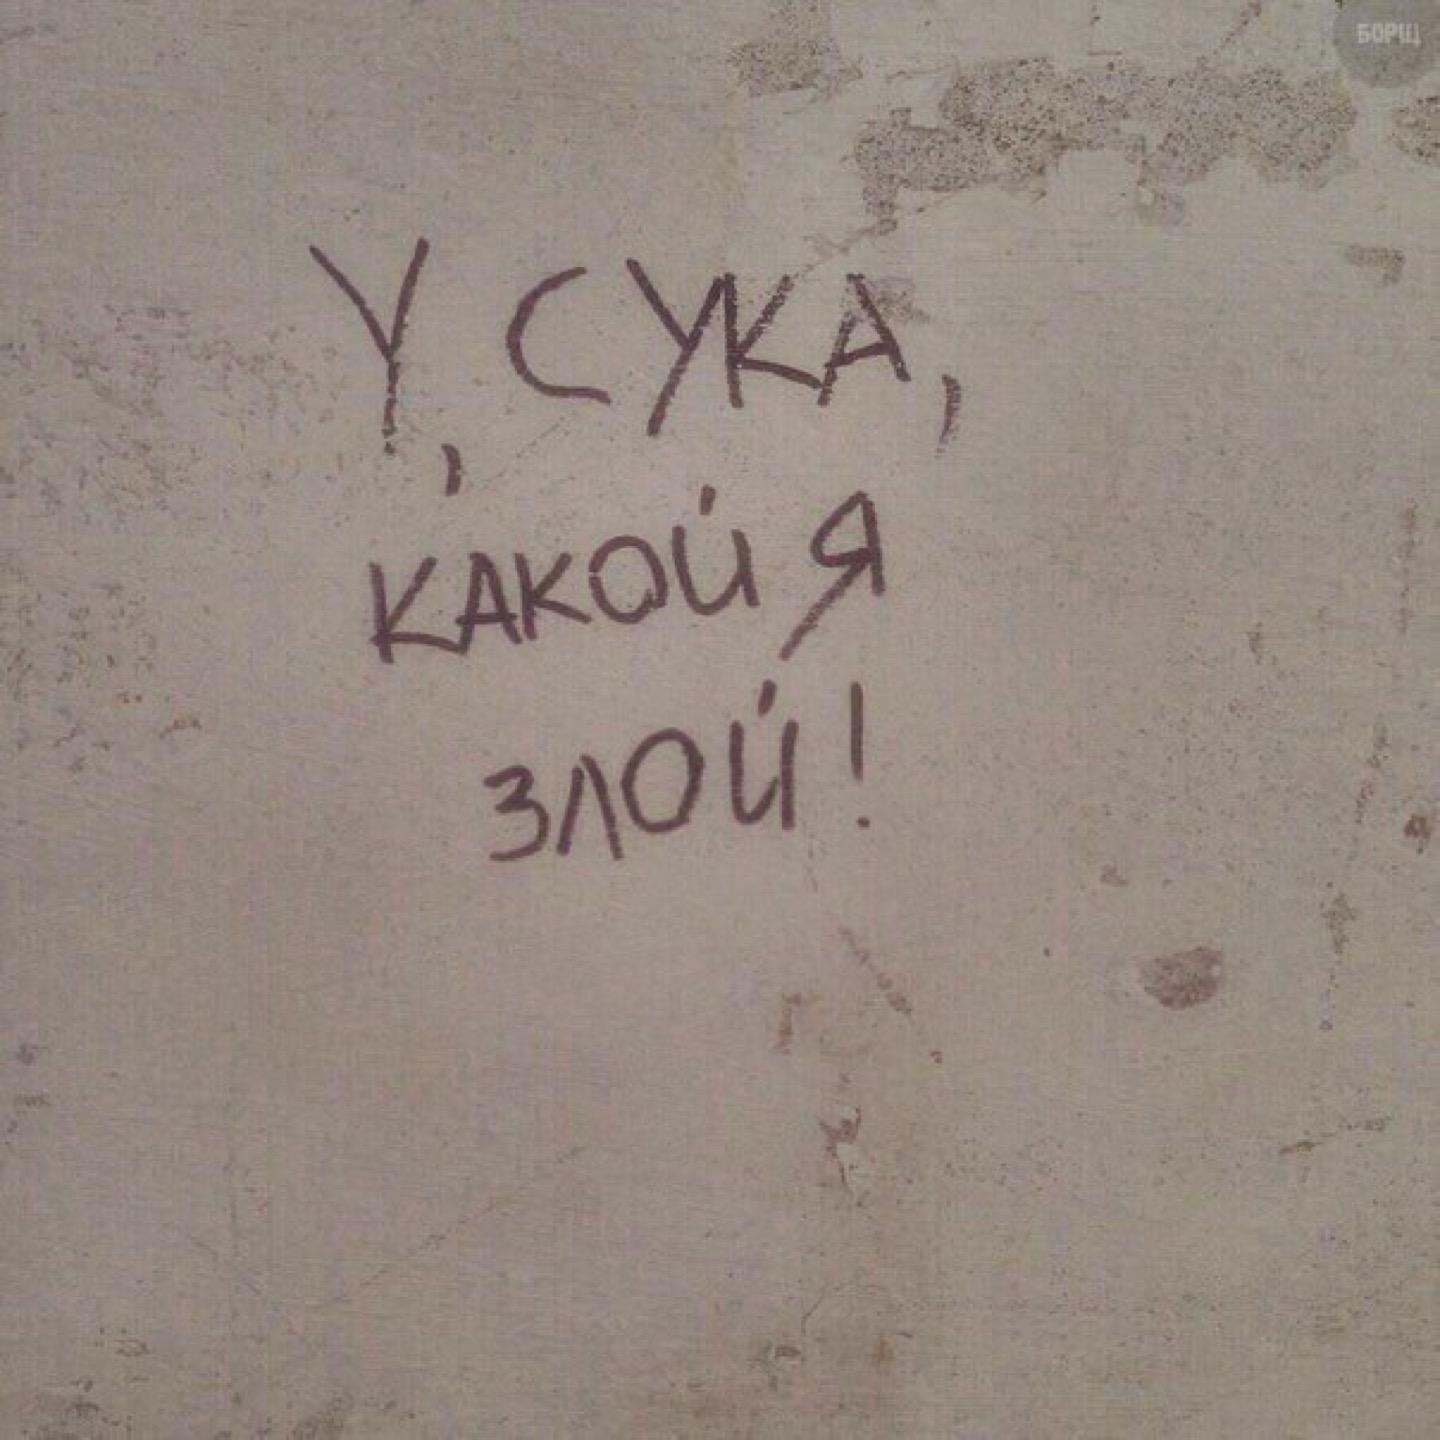 БОРЩ
У, СУКА,
КАКОЙ Я
ЗЛОЙ!